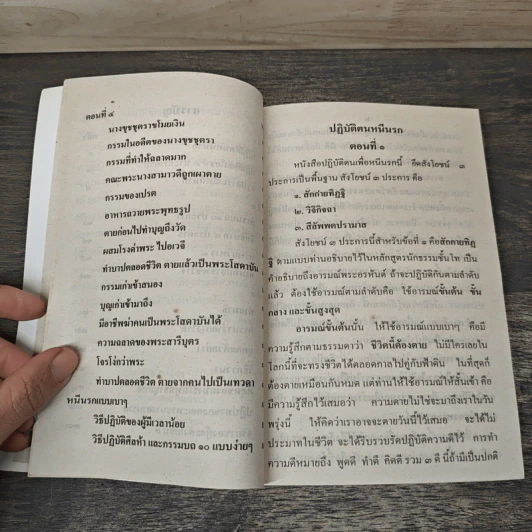 ตอนที่ ๔
นางขุชชุตราขโมยเงิน
กรรมในอดีตของนางขุชชุตรา
กรรมที่ทำให้ฉลาดมาก
คณะพระนางสามาวดีถูกเผาตาย
กรรมของเปรต
อาหารถวายพระพุทธรูป
ตายก่อนไปทำบุญถึงวัด
ผสมโรงด่าพระ ไปอเวจี
ทำบาปตลอดชีวิต ตายแล้วเป็นพระโสดาบัน
กรรมเก่าเข้าสนอง
บุญเก่าเข้ามาถึง
มีอาชีพฆ่าคนเป็นพระโสดาบันได้
ความฉลาดของพระสารีบุตร
โจรโง่กว่าพระ
ทำบาปตลอดชีวิต ตายจากคนไปเป็นเทวดา
หนีนรกแบบเบาๆ
วิธีปฏิบัติของผู้มีเวลาน้อย
วิธีปฏิบัติศีลห้า และกรรมบถ ๑๐ แบบง่ายๆ
ปฏิบัติตนหนีนรก
ตอนที่ ๑
หนังสือปฏิบัติตนเพื่อหนีนรกนี้ ยึดสังโยชน์ ๓
ประการเป็นพื้นฐาน สังโยชน์ ๓ ประการ คือ
๑. สักกายทิฏฐิ
๒. วิจิกิจฉา
๓. สีลัพพตปรามาส
สังโยชน์ ๓ ประการนี้สำหรับข้อที่ ๑ คือสักกายทิฏ
ฐิ ตามแบบท่านอธิบายไว้ในหลักสูตรนักธรรมชั้นโท เป็น
คำอธิบายถึงอารมณ์พระอรหันต์ ถ้าจะปฏิบัติกันตามลำดับ
แล้ว ต้องใช้อารมณ์ตามลำดับคือ ใช้อารมณ์ขั้นต้น ขั้น
กลาง และขั้นสูงสุด
อารมณ์ขั้นต้นนั้น ให้ใช้อารมณ์แบบเบาๆ คือมี
ความรู้สึกตามธรรมดาว่า ชีวิตนี้ต้องตาย ไม่มีใครเลยใน
โลกนี้ที่จะทรงชีวิตได้ตลอดกาลไปคู่กับฟ้าดิน ในที่สุดก็
ต้องตายเหมือนกันหมด แต่ท่านให้ใช้อารมณ์ให้สั้นเข้า คือ
มีความรู้สึกไว้เสมอว่า ความตายไม่ใช่จะมาถึงเราในวัน
พรุ่งนี้ ให้คิดว่าเราอาจจะตายวันนี้ไว้เสมอ จะได้ไม่
ประมาทในชีวิต จะได้รีบรวบรัดปฏิบัติความดีไว้ การทำ
ความดีหมายถึง พูดดี ทำดี คิดดี รวม ๓ ดี นี้ถ้ามีเป็นปกติ